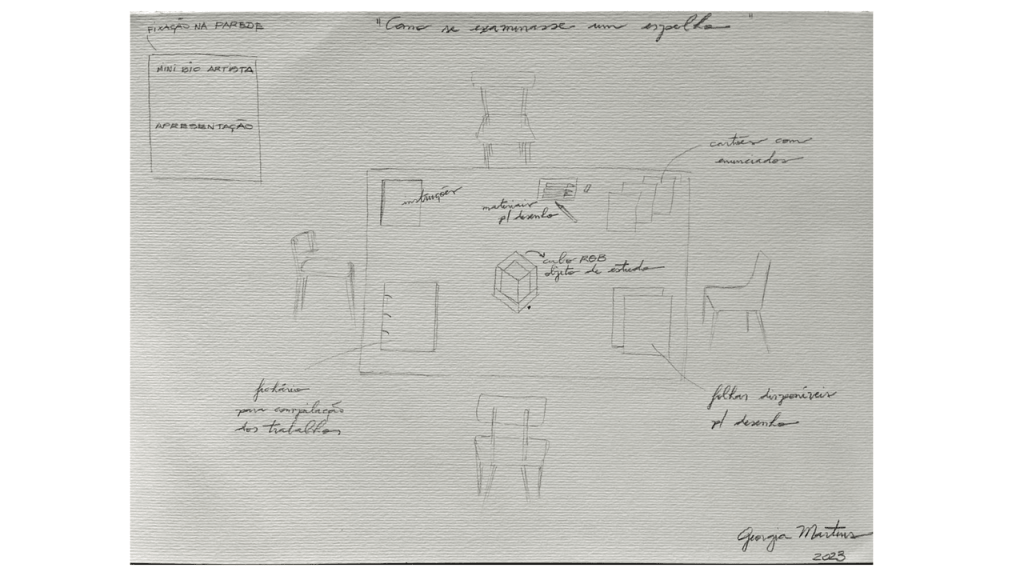 FIXAÇÃO NA PAREDE
"Como se examinasse um espelho"
MINI BIO ARTISTA
APRESENTAÇÃO
cartões com
enunciados
instruções
materiais
p/ desenho
cubo RGB
objeto de estudo
fichário
para compilação
dos trabalhos
folhas disponíveis
p/ desenho
Georgia Martins
2023